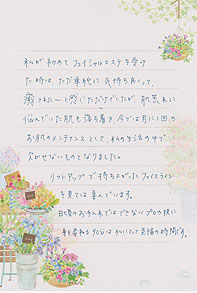 私が初めてフェイシャルエステを受け
た時は、ただ単純に気持ち良くって、
癒された〜と感じただけでしたが、肌荒れに
悩んでいた肌も落ち着き、今では月に1回の
お肌のメンテナンスとして、私の生活の中で
欠かせないものとなりました。
リフトアップで持ち上がったフェイスライン
を見ては喜んでいます。
日頃のお手入れではできないプロの技に
身を委ねる90分は私にとって至福の時間です。